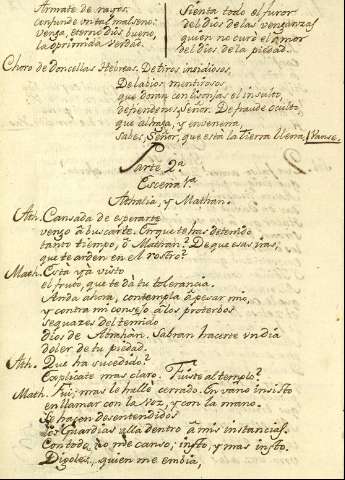 Armate de rayos,
confunde un tal malseno:
venga, eterno dios bueno,
la oprimida verdad.
Sienta todo el furor
del dios de las venganzas
quien no curò el amor
del dios de la piedad.
Choro de doncellas Hebreas. De tiros insidiosos,
De labios, mentirosos
que doran con lisonjas el insulto,
defiendenos, Señor. De fraude oculto,
que alhaga, y envenena,
sabes, Señor, que està la tierra llena. Vanse.
Parte 2.ª
Escena 1.ª
Athalia, y Mathan.
Ath. Cansada de esperarte
vengo â buscarte. En que te has detenido
tanto tiempo, ô Mathan? De que esas iras,
que te arden en el rostro?
Math. Esta yà visto
el fruto, que te dà tu tolerancia.
Anda ahora, contempla â pesar mio,
y contra mi consejo â los protervos
sequazes del temido
dios de Abrahàn. Sabran hacerte un dia
doler de tu piedad.
Ath. Que ha sucedido?
Explicate mas claro. Fuiste al templo?
Math. Fui; mas le hallè cerrado. En vano insisto
en llamar con la voz, y con la mano.
Se hacen desentendidos
los Guardias allà dentro â mis instancias.
Con todo no me canso; insto, y mas insto.
Digoles, quien me embia,